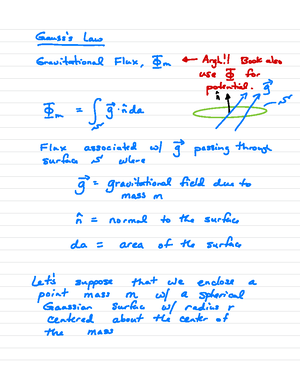 Gauss's Law
Gravitational Flux, Φm ← Argh!! Book also
use Φ for
potential.
n̂ g⃗ 𝒮
Φm = ∫𝒮 g⃗ · n̂ da
Flux associated w/ g⃗ passing through
surface 𝒮 where
g⃗ = gravitational field due to
mass m
n̂ = normal to the surface
da = area of the surface
Let's suppose that we enclose a
point mass m w/ a spherical
Gaussian surface w/ radius r
centered about the center of
the mass